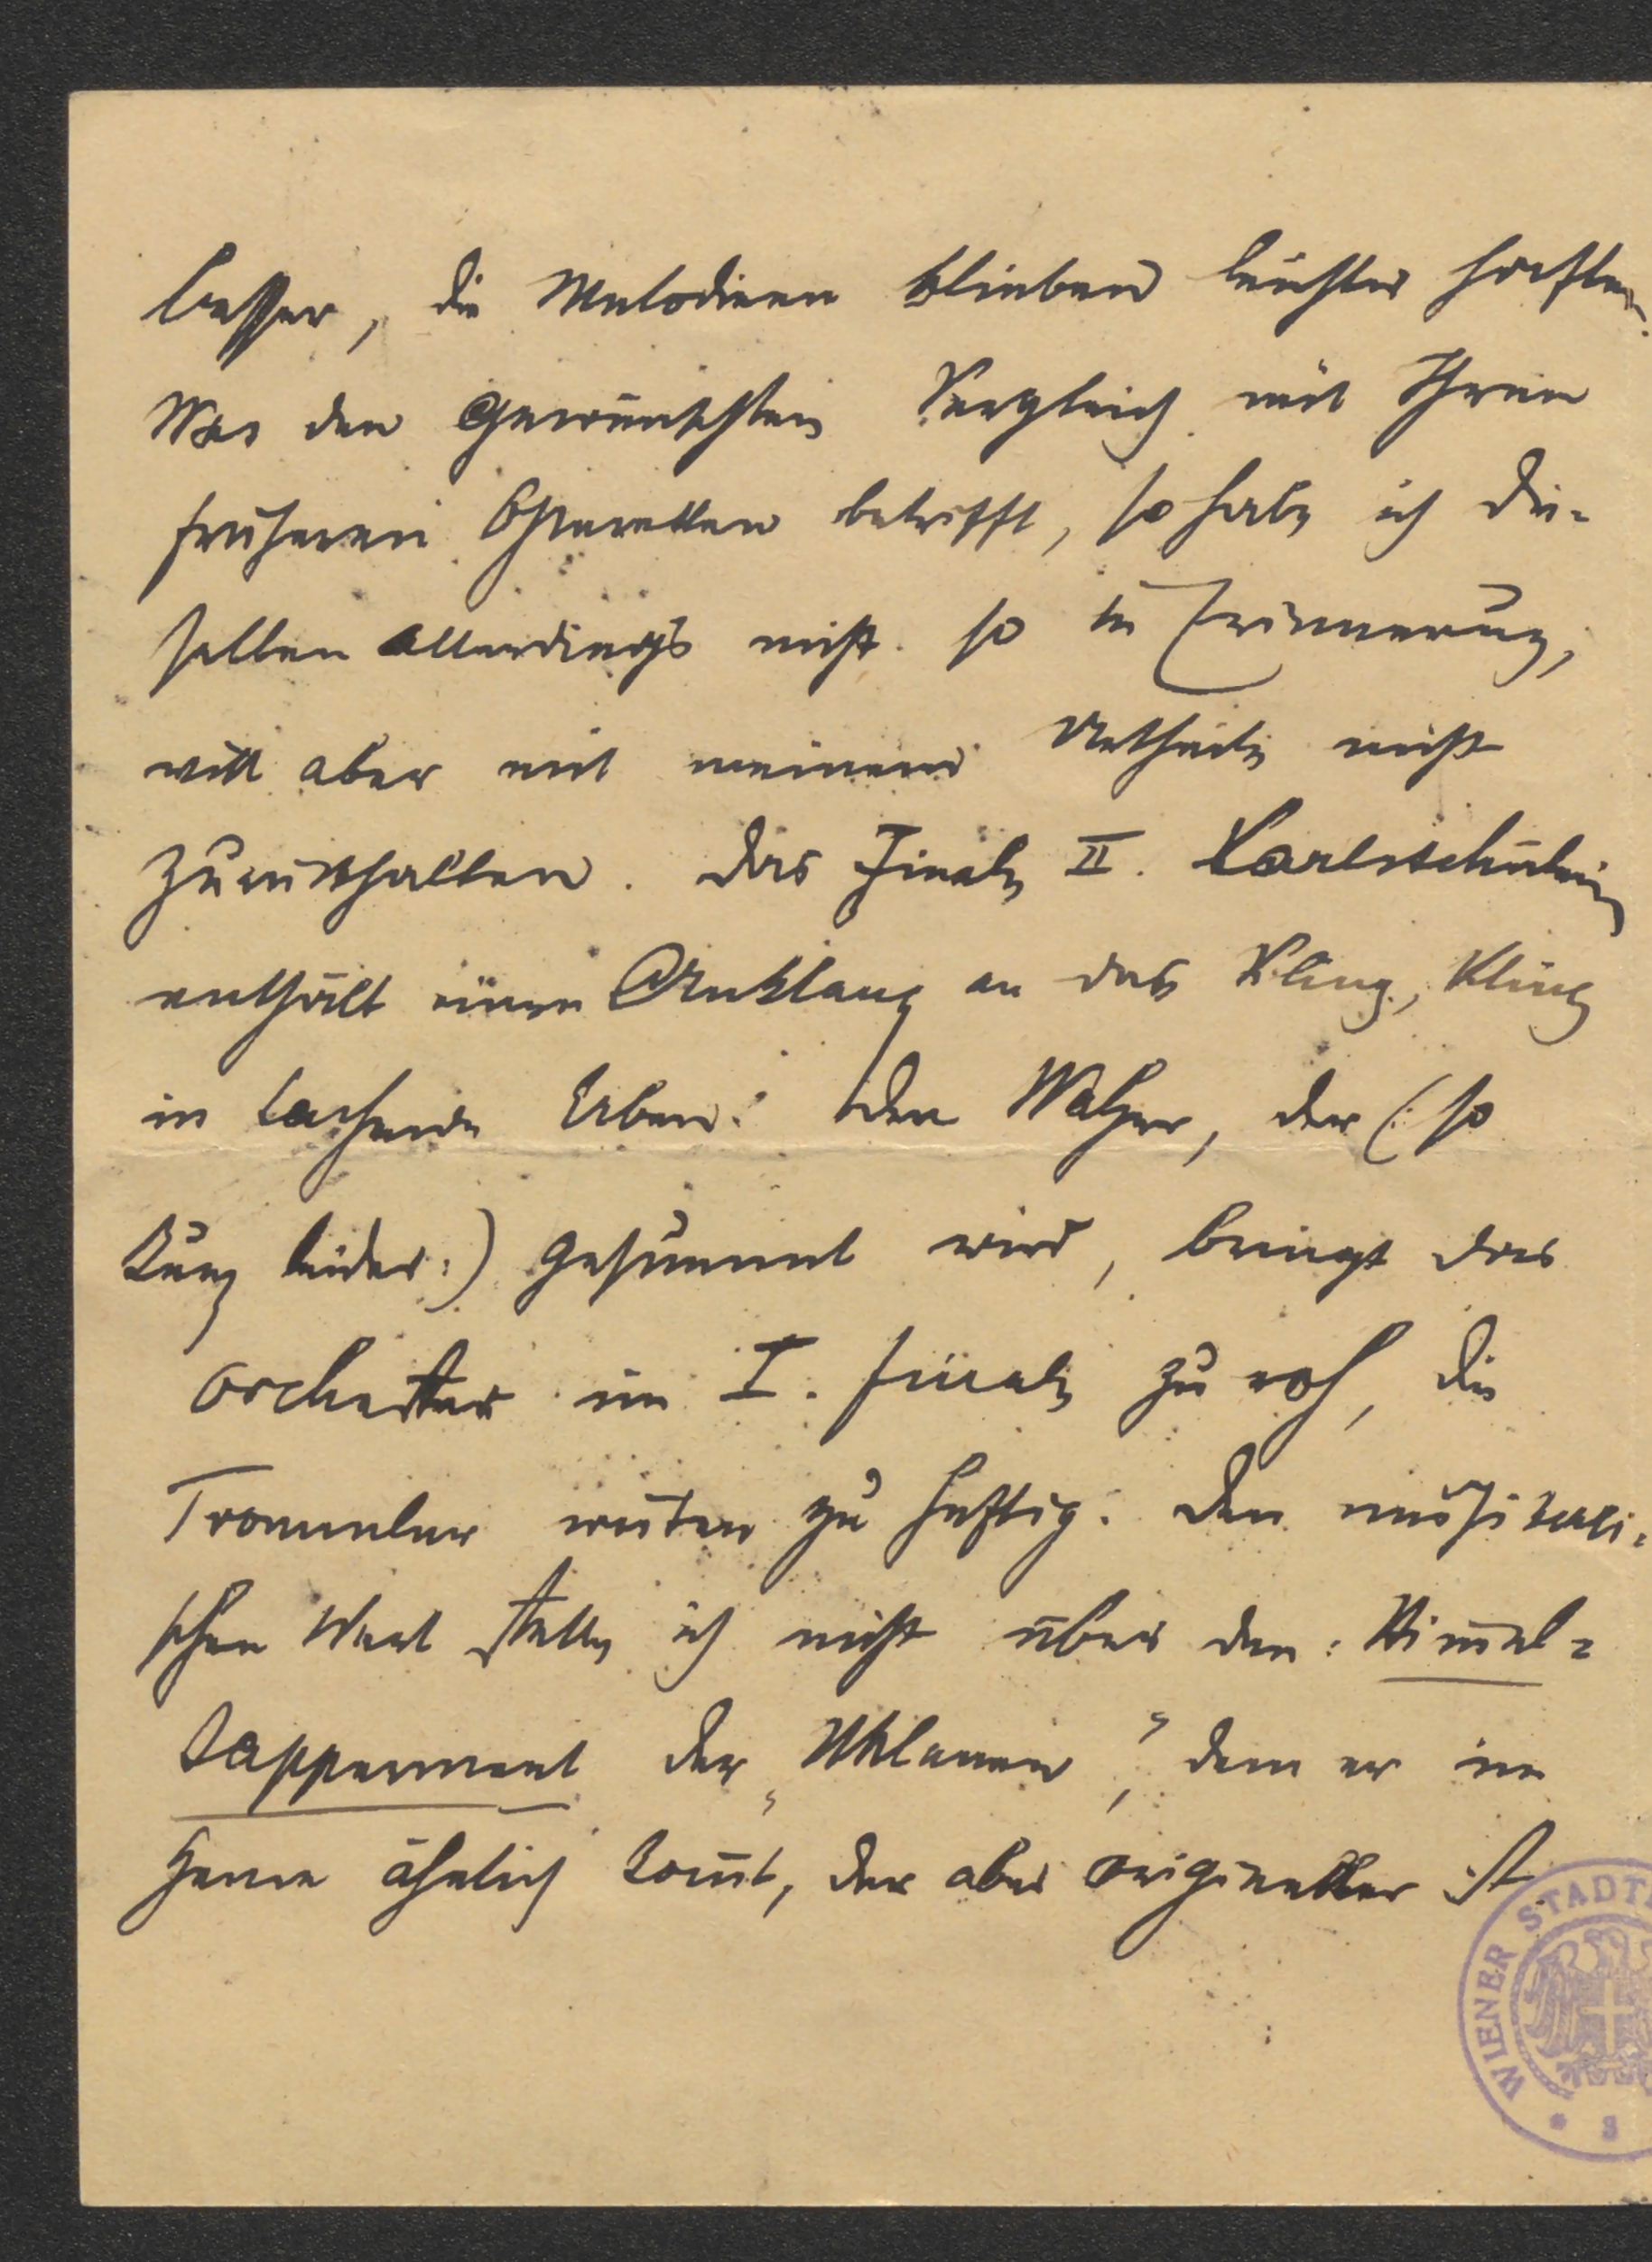 besser, die Melodieen blieben leichter haften.
Was den gewünschten Vergleich mit Ihren
früheren Operetten betrifft, so habe ich die-
selben allerdings nicht so in Erinnerung,
will aber mit meinem Urtheile nicht
zurückhalten. Das Finale II. Karlsschülerin
enthält einen Anklang an das Kling, Kling
in lachende Erben. Den Walzer, der (: so
kurz leider :) gesummt wird, bringt das
Orchester im I. Finale zu roh, die
Trommler wüten zu heftig. Den musikali-
schen Wert stelle ich nicht über den: Himel-
sapperment der „Uhlanen", dem er im
Genre ähnlich komt, der aber origineller ist
WIENER STADT